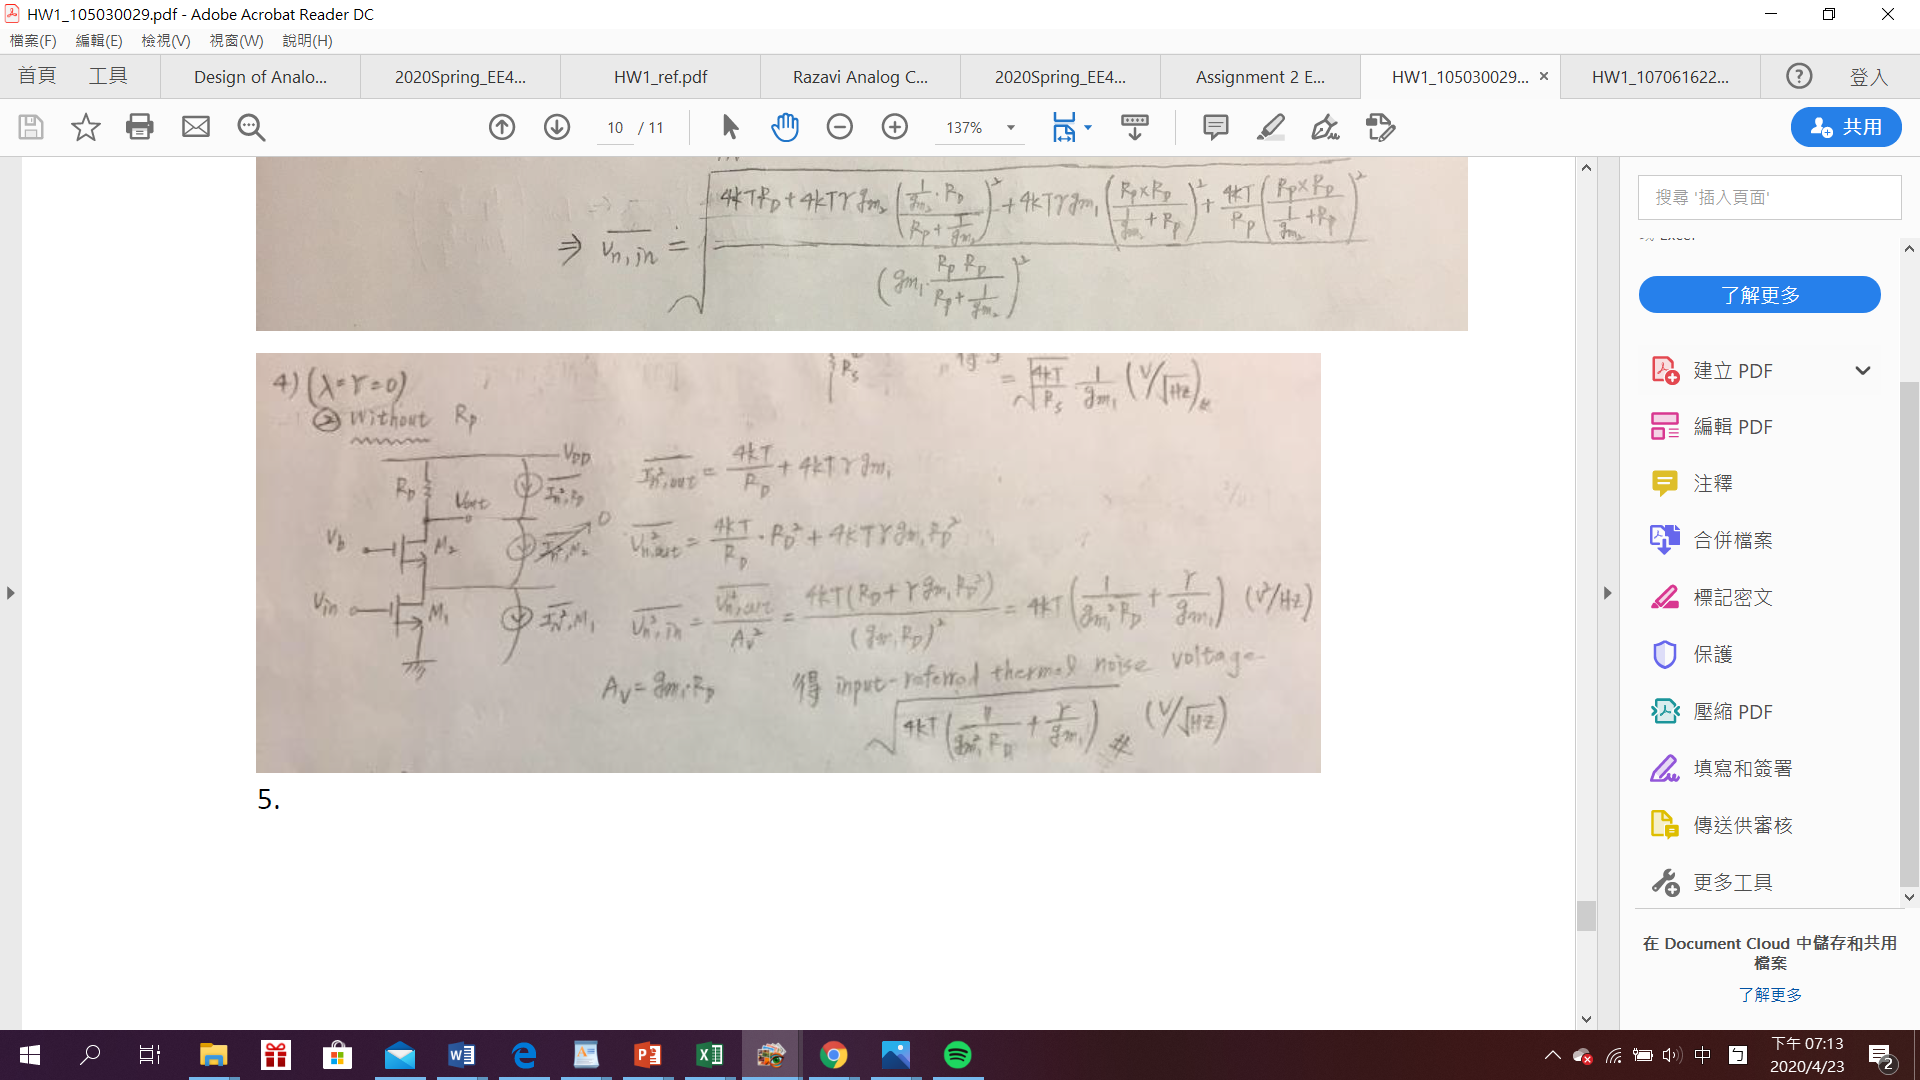 HW1_105030029.pdf - Adobe Acrobat Reader DC
檔案(F) 編輯(E) 檢視(V) 視窗(W) 說明(H)
首頁 工具 Design of Analo... 2020Spring_EE4... HW1_ref.pdf Razavi Analog C... 2020Spring_EE4... Assignment 2 E... HW1_105030029... × HW1_107061622... 登入
10 / 11 137% 共用
⇒ Vn,in = √((4kTRD + 4kTγgm2 ((1/gm2 · RD)/(RP + 1/gm2))² + 4kTγgm1 ((RP×RD)/(1/gm2 + RP))² + 4kT/RP ((RP×RD)/(1/gm2 + RP))²)/(gm1 · (RP RD)/(RP + 1/gm2))²)
4) (λ=γ=0)
② Without RP
RS
= √(4kT/RS) 1/gm1 (V/√Hz)#
VDD
RD
I²n,RD
Vout
Vb
M2
I²n,M2
0
Vin
M1
I²n,M1
I²n,out = 4kT/RD + 4kTγgm1
V²n,out = 4kT/RD · RD² + 4kTγgm1RD²
V²n,in = V²n,out/AV² = 4kT(RD + γgm1RD²)/(gm1RD)² = 4kT(1/(gm1²RD) + γ/gm1) (V²/Hz)
AV = gm1·RD 得 input-referred thermal noise voltage
√(4kT(1/(gm1²RD) + γ/gm1))# (V/√Hz)
5.
搜尋 '插入頁面'
了解更多
建立 PDF
編輯 PDF
注釋
合併檔案
標記密文
保護
壓縮 PDF
填寫和簽署
傳送供審核
更多工具
在 Document Cloud 中儲存和共用
檔案
了解更多
中
下午 07:13
2020/4/23
2